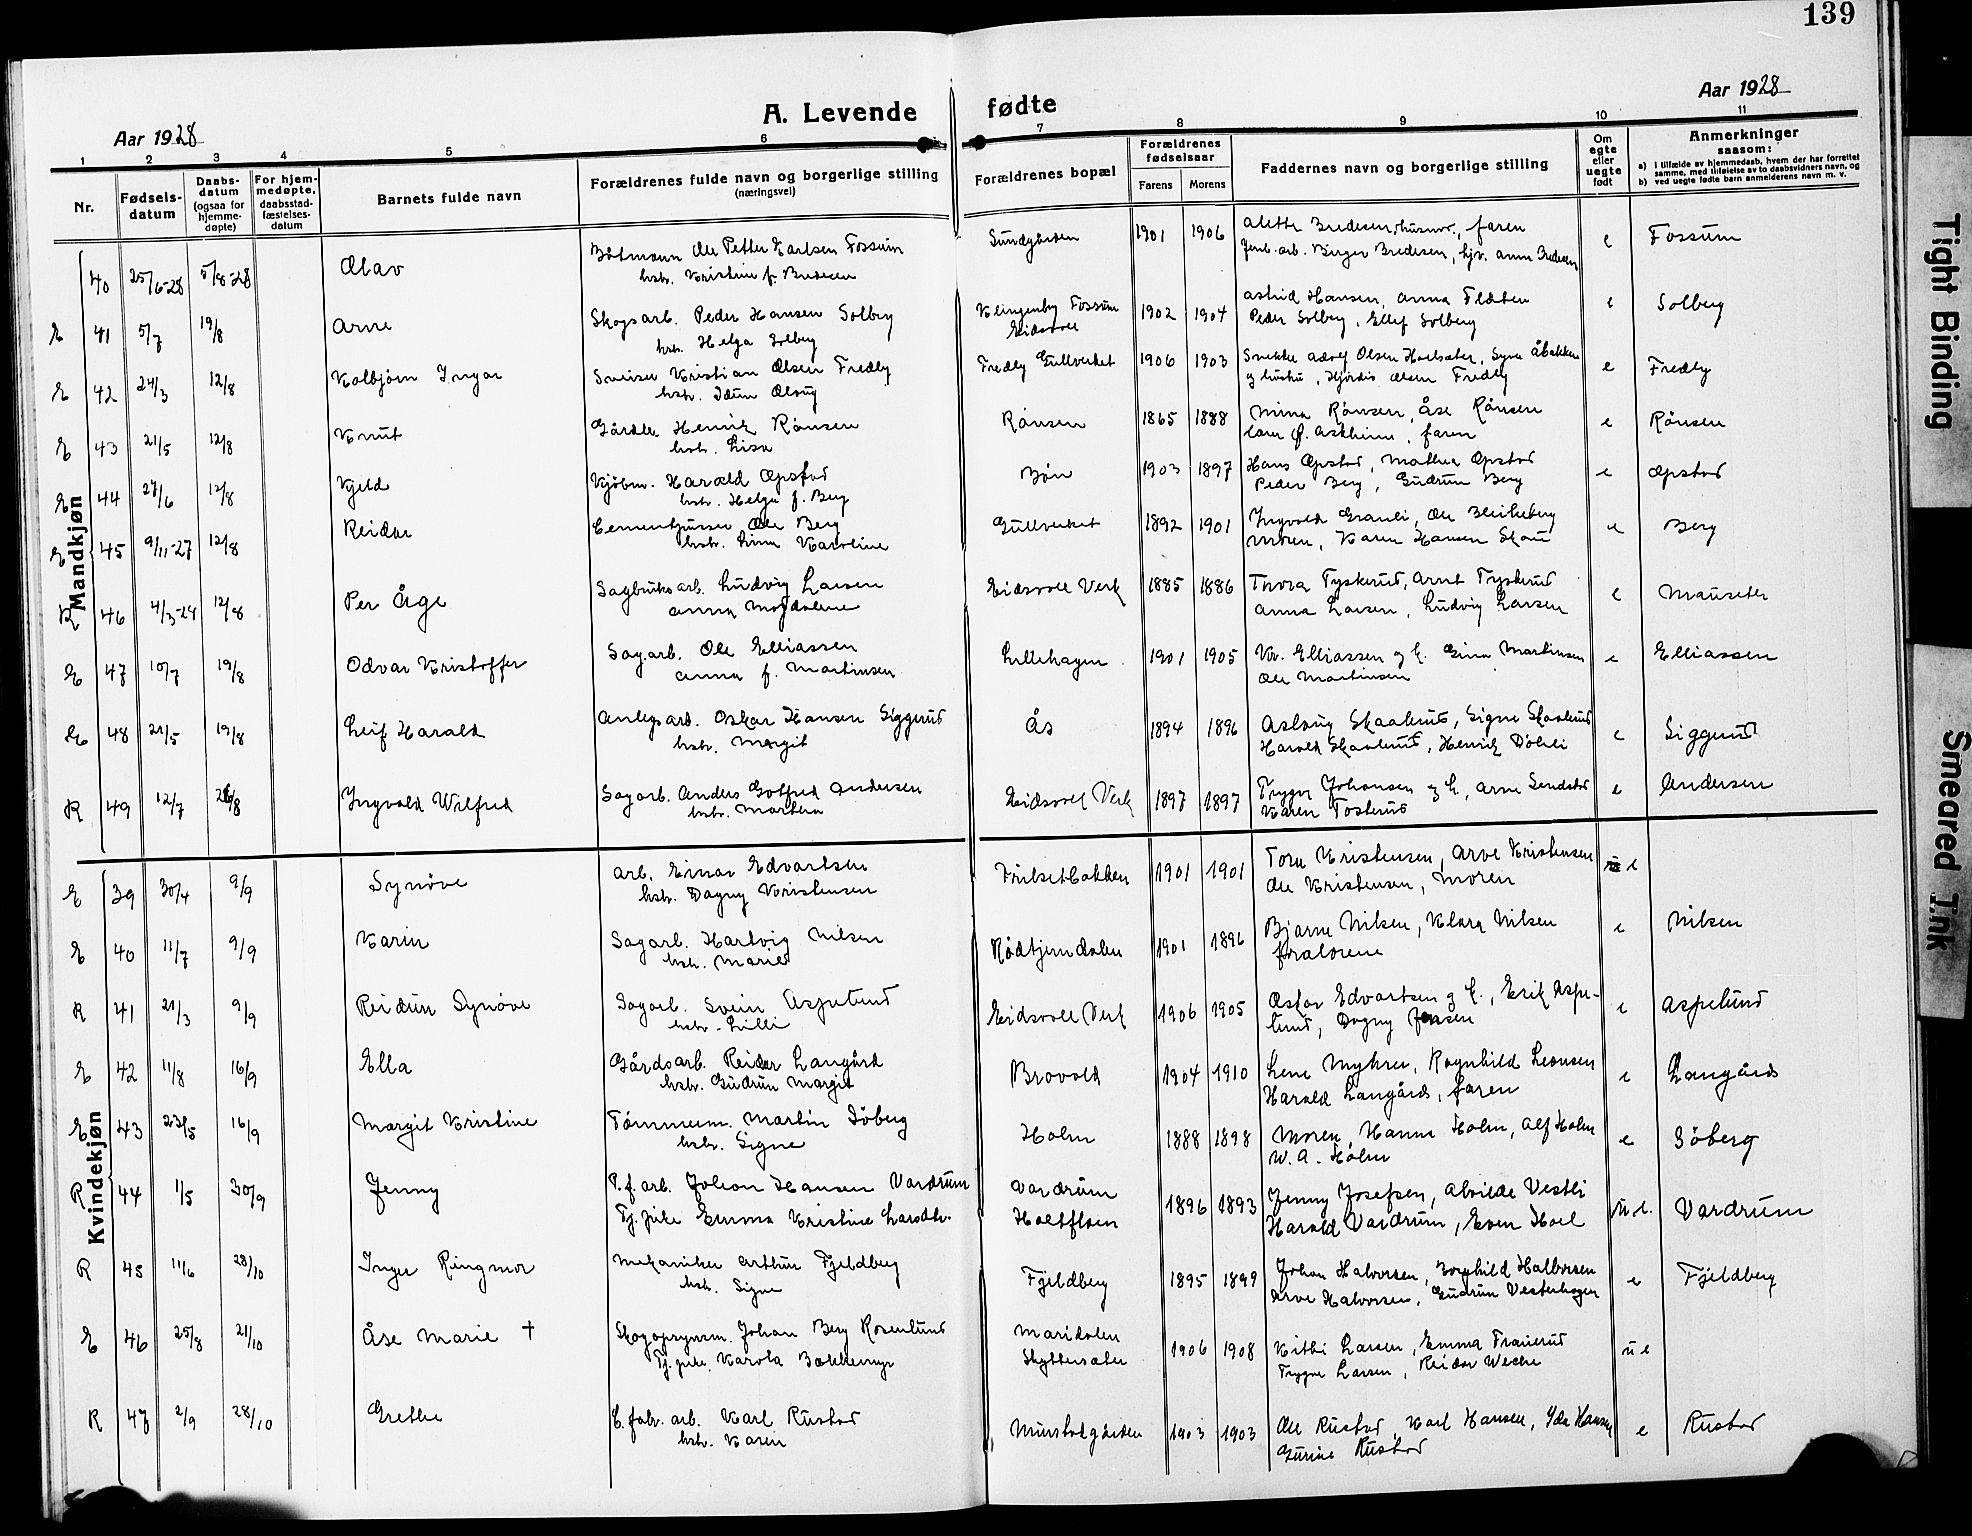 139
Aar 1928
A. Levende fødte
Aar 1928
1 2 3 4 5 6 7 8 9 10 11
Nr.
Fødsels-
datum
Daabs-
datum
(ogsaa for
hjemme-
døpte)
For hjem-
medøpte,
daabsstad-
fæstelses-
datum
Barnets fulde navn
Forældrenes fulde navn og borgerlige stilling
(næringsvei)
Forældrenes bopæl
Forældrenes
fødselsaar
Farens Morens
Faddernes navn og borgerlige stilling
Om
egte
eller
uegte
født
Anmerkninger
saasom:
a) i tilfælde av hjemmedaab, hvem der har forrettet
samme, med tilføielse av to daabsvidners navn, og
b) ved uegte fødte barn anmelderens navn m. v.
Mandkjøn
40 25/6-28 5/8-28 Olav Båtmann Ole Petter Karlsen Fossum Sundgården 1901 1906 Alette Bredesen, husmor, faren e Fossum
hstr. Kristine f. Bredesen Jernb.arb. Birger Bredesen, hjv. Anna Bredesen
E 41 5/7 19/8 Arne Skogsarb. Peder Hansen Solberg Klingenberg Fossum 1902 1904 Astrid Hansen, Anna Flaten e Solberg
hstr. Helga Solberg Eidsvoll Peder Solberg, Ellef Solberg
E 42 24/3 12/8 Kolbjørn Ingar Sveiser Kristian Olsen Fredly Fredly Gullverket 1906 1903 Snekker Adolf Olsen Holsæter, Syver Åbakken e Fredly
hstr. Idun Olaug og hustru, Hjørdis Olsen Fredly
E 43 21/5 12/8 Knut Gårdbr. Henrik Rånsen Rånsen 1865 1888 Mina Rånsen, Åse Rånsen e Rånsen
hstr. Lisa Lars P. Askheim, faren
E 44 27/6 12/8 Kjeld Kjøbm. Harald Opstad Bøn 1903 1897 Hans Opstad, Mathea Opstad e Opstad
hstr. Helga f. Berg Peder Berg, Gudrun Berg
E 45 9/11-27 12/8 Reidar Cementgusser Ole Berg Gullverket 1892 1901 Ingvald Granli, Ole Bleikeberg e Berg
hstr. Lina Karoline Moren, Karen Hansen Skau
R 46 4/3-24 12/8 Per Åge Sagbruksarb. Ludvig Larsen Eidsvoll Verk 1885 1886 Thora Tyskerud, Arnt Tyskerud e Mauseter
Anna Magdalene Anna Larsen, Ludvig Larsen
E 47 10/7 19/8 Odvar Kristoffer Sagarb. Ole Elliassen Lillehagen 1901 1905 Kr. Elliassen og h. Gina Martinsen e Elliassen
Anna f. Martinsen Ole Martinsen
E 48 21/5 19/8 Leif Harald Anlegsarb. Oskar Hansen Siggerud Ås 1894 1896 Aslaug Skaalerud, Signe Skaalerud e Siggerud
hstr. Margit Harald Skaalerud, Henrik Döhli
R 49 12/7 26/8 Ingvald Wilfred Sagarb. Anders Gotfred Andersen Eidsvoll Verk 1897 1897 Trygve Johansen og h., Arne Sendstad e Andersen
hstr. Marthea Karen Tosterud
Kvindekjøn
E 39 30/4 9/9 Synøve Arb. Einar Edvartsen Frilsetbakken 1901 1901 Tora Kristensen, Arve Kristensen e
hstr. Dagny Kristensen Ole Kristensen, Moren
E 40 11/7 9/9 Karin Sagarb. Hartvig Nilsen Rådtjerndalen 1901 1896 Bjarne Nilsen, Klara Nilsen e Nilsen
hstr. Marie foreldrene
R 41 21/3 9/9 Reidun Synøve Sagarb. Svein Aspelund Eidsvoll Verk 1906 1905 Oskar Edvartsen og h., Erik Aspe- e Aspelund
hstr. Lilli lund, Dagny Jensen
E 42 11/8 16/9 Ella Gårdsarb. Reidar Langård Brovold 1904 1910 Lene Myhrer, Ragnhild Leonsen e Langård
hstr. Gudrun Margit Harald Langård, faren
E 43 23/5 16/9 Margit Kristine Tømmerm. Martin Søberg Holm 1888 1898 Moren, Hanna Holm, Alf Holm e Søberg
hstr. Signe W. A. Holm
R 44 1/5 30/9 Jenny P.f.arb. Johan Hansen Vardrum Vardrum 1896 1893 Jenny Josefsen, Alvilde Vestli u.e. Vardrum
Tj.pike Emma Kristine Larsdtr. Holtfloen Harald Vardrum, Even Hoel
R 45 11/6 28/10 Inger Ringmor Mekaniker Arthur Fjeldberg Fjeldberg 1895 1899 Johan Halvorsen, Borghild Halvorsen e Fjeldberg
hstr. Signe Arve Halvorsen, Gudrun Vesterhagen
E 46 25/8 21/10 Åse Marie † Skogopsynsm. Johan Berg Rosenlund Maridalen 1906 1908 Kitti Larsen, Emma Trauerud u e
Tj.pike Karola Bekkemyr Skyttersæter Trygve Larsen, Reidar Weche
R 47 2/9 28/10 Grethe C.fabr.arb. Karl Rustad Minstadgården 1903 1903 Ole Rustad, Karl Hansen, Ida Hansen e Rustad
hstr. Karen Gurine Rustad
Tight Binding
Smeared Ink